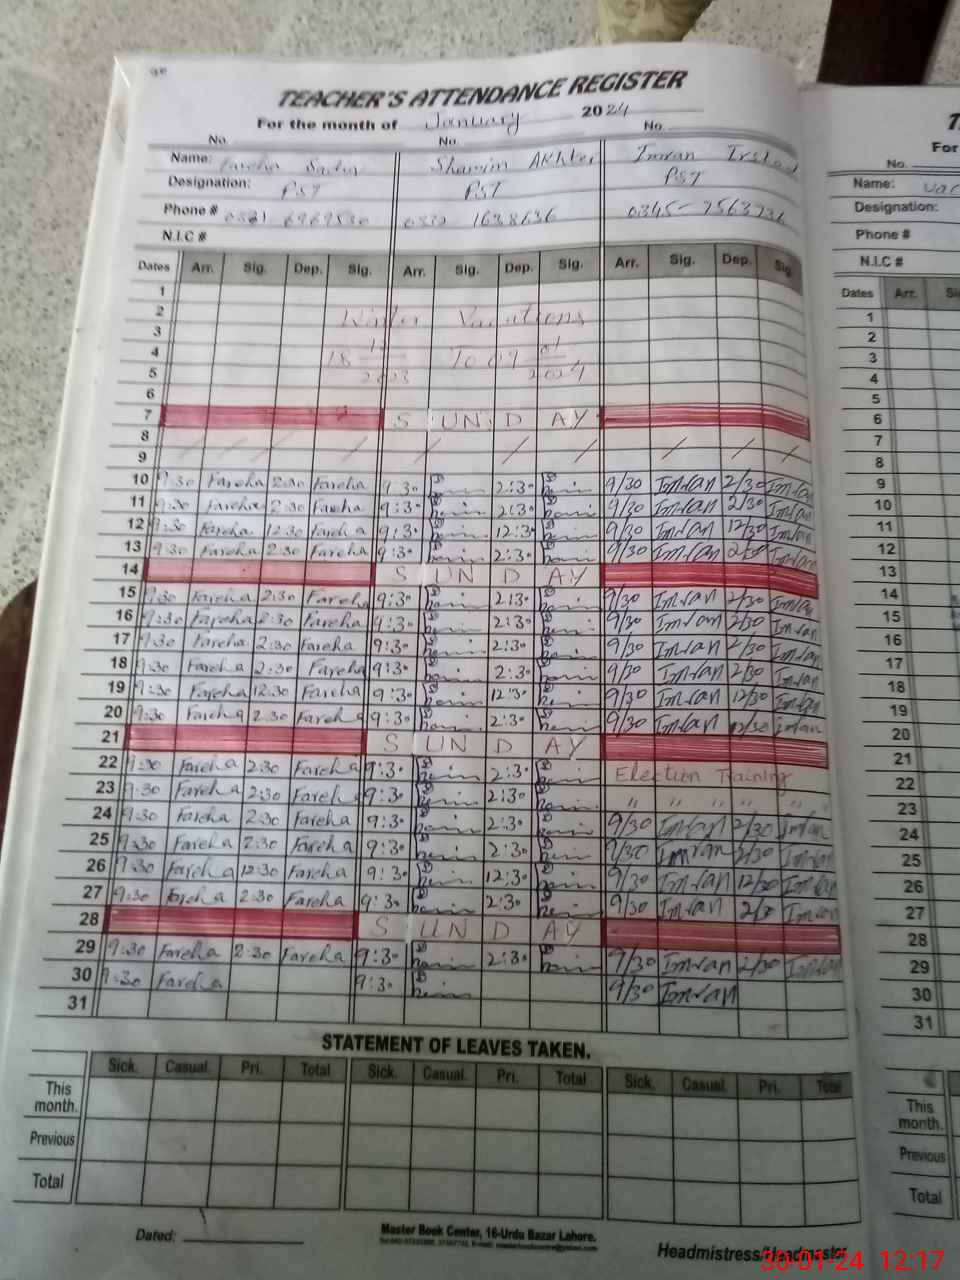 TEACHER'S ATTENDANCE REGISTER
For the month of January 2024
No. No. No.
Name: Fareha Shamim Akhter Imran
Designation: PST PST PST
Phone # 1638636
N.I.C #
Dates Arr. Sig. Dep. Sig. Arr. Sig. Dep. Sig. Arr. Sig. Dep. Sig.
1
2 Winter Vacations
3
4 18 12 To 09 01
5 2023 2024
6
7 SUNDAY
8
9
10 9:30 Fareha 2:30 Fareha 9:30 2:30 9/30 Imran 2/30 Imran
11 9:30 Fareha 2:30 Fareha 9:30 2:30 9/30 Imran 2/30 Imran
12 9:30 Fareha 12:30 Fareha 9:30 12:30 9/30 Imran 12/30 Imran
13 9:30 Fareha 2:30 Fareha 9:30 2:30 9/30 Imran 2/30 Imran
14 SUNDAY
15 9:30 Fareha 2:30 Fareha 9:30 2:30 9/30 Imran 2/30 Imran
16 9:30 Fareha 2:30 Fareha 9:30 2:30 9/30 Imran 2/30 Imran
17 9:30 Fareha 2:30 Fareha 9:30 2:30 9/30 Imran 2/30 Imran
18 9:30 Fareha 2:30 Fareha 9:30 2:30 9/30 Imran 2/30 Imran
19 9:30 Fareha 12:30 Fareha 9:30 12:30 9/30 Imran 12/30 Imran
20 9:30 Fareha 2:30 Fareha 9:30 2:30 9/30 Imran 12/30 Imran
21 SUNDAY
22 9:30 Fareha 2:30 Fareha 9:30 2:30 Election Training
23 9:30 Fareha 2:30 Fareha 9:30 2:30 " " " " " "
24 9:30 Fareha 2:30 Fareha 9:30 2:30 9/30 Imran 2/30 Imran
25 9:30 Fareha 2:30 Fareha 9:30 2:30 9/30 Imran 2/30 Imran
26 9:30 Fareha 12:30 Fareha 9:30 12:30 9/30 Imran 12/30 Imran
27 9:30 Fareha 2:30 Fareha 9:30 2:30 9/30 Imran 2/30 Imran
28 SUNDAY
29 9:30 Fareha 2:30 Fareha 9:30 2:30 9/30 Imran 2/30 Imran
30 9:30 Fareha 9:30 9/30 Imran
31
STATEMENT OF LEAVES TAKEN.
Sick. Casual. Pri. Total Sick. Casual. Pri. Total Sick. Casual. Pri. Total
This month.
Previous
Total
Dated:
Master Book Center, 16-Urdu Bazar Lahore.
Headmistress/Headmaster
For
No.
Name:
Designation:
Phone #
N.I.C #
Dates Arr.
1
2
3
4
5
6
7
8
9
10
11
12
13
14
15
16
17
18
19
20
21
22
23
24
25
26
27
28
29
30
31
This month.
Previous
Total
30-01-24 12:17